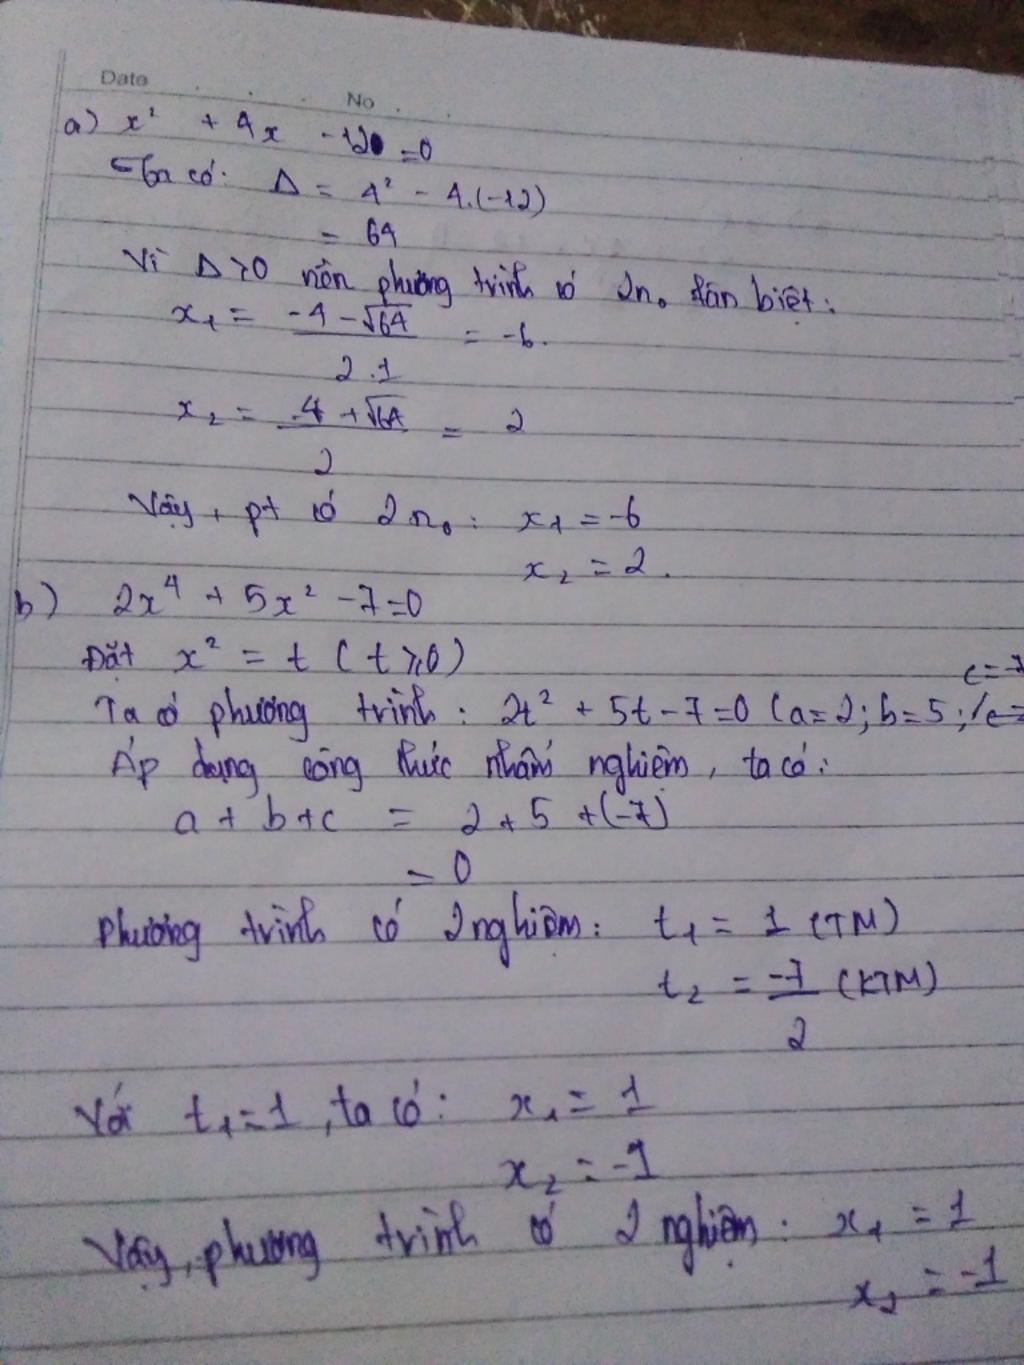 Date
No
a) x² + 4x - 12 = 0
Ta có: Δ = 4² - 4.(-12)
= 64
Vì Δ > 0 nên phương trình có 2n₀ fân biệt:
x₁ = (-4 - √64) / 2.1 = -6.
x₂ = (-4 + √64) / 2 = 2
Vậy, pt có 2n₀: x₁ = -6
x₂ = 2.
b) 2x⁴ + 5x² - 7 = 0
Đặt x² = t (t ≥ 0)
c = -7
Ta có phương trình: 2t² + 5t - 7 = 0 (a = 2; b = 5;
Áp dụng công thức nhẩm nghiệm, ta có:
a + b + c = 2 + 5 + (-7)
= 0
Phương trình có 2 nghiệm: t₁ = 1 (TM)
t₂ = -7/2 (KTM)
Với t₁ = 1, ta có: x₁ = 1
x₂ = -1
Vậy, phương trình có 2 nghiệm: x₁ = 1
x₂ = -1